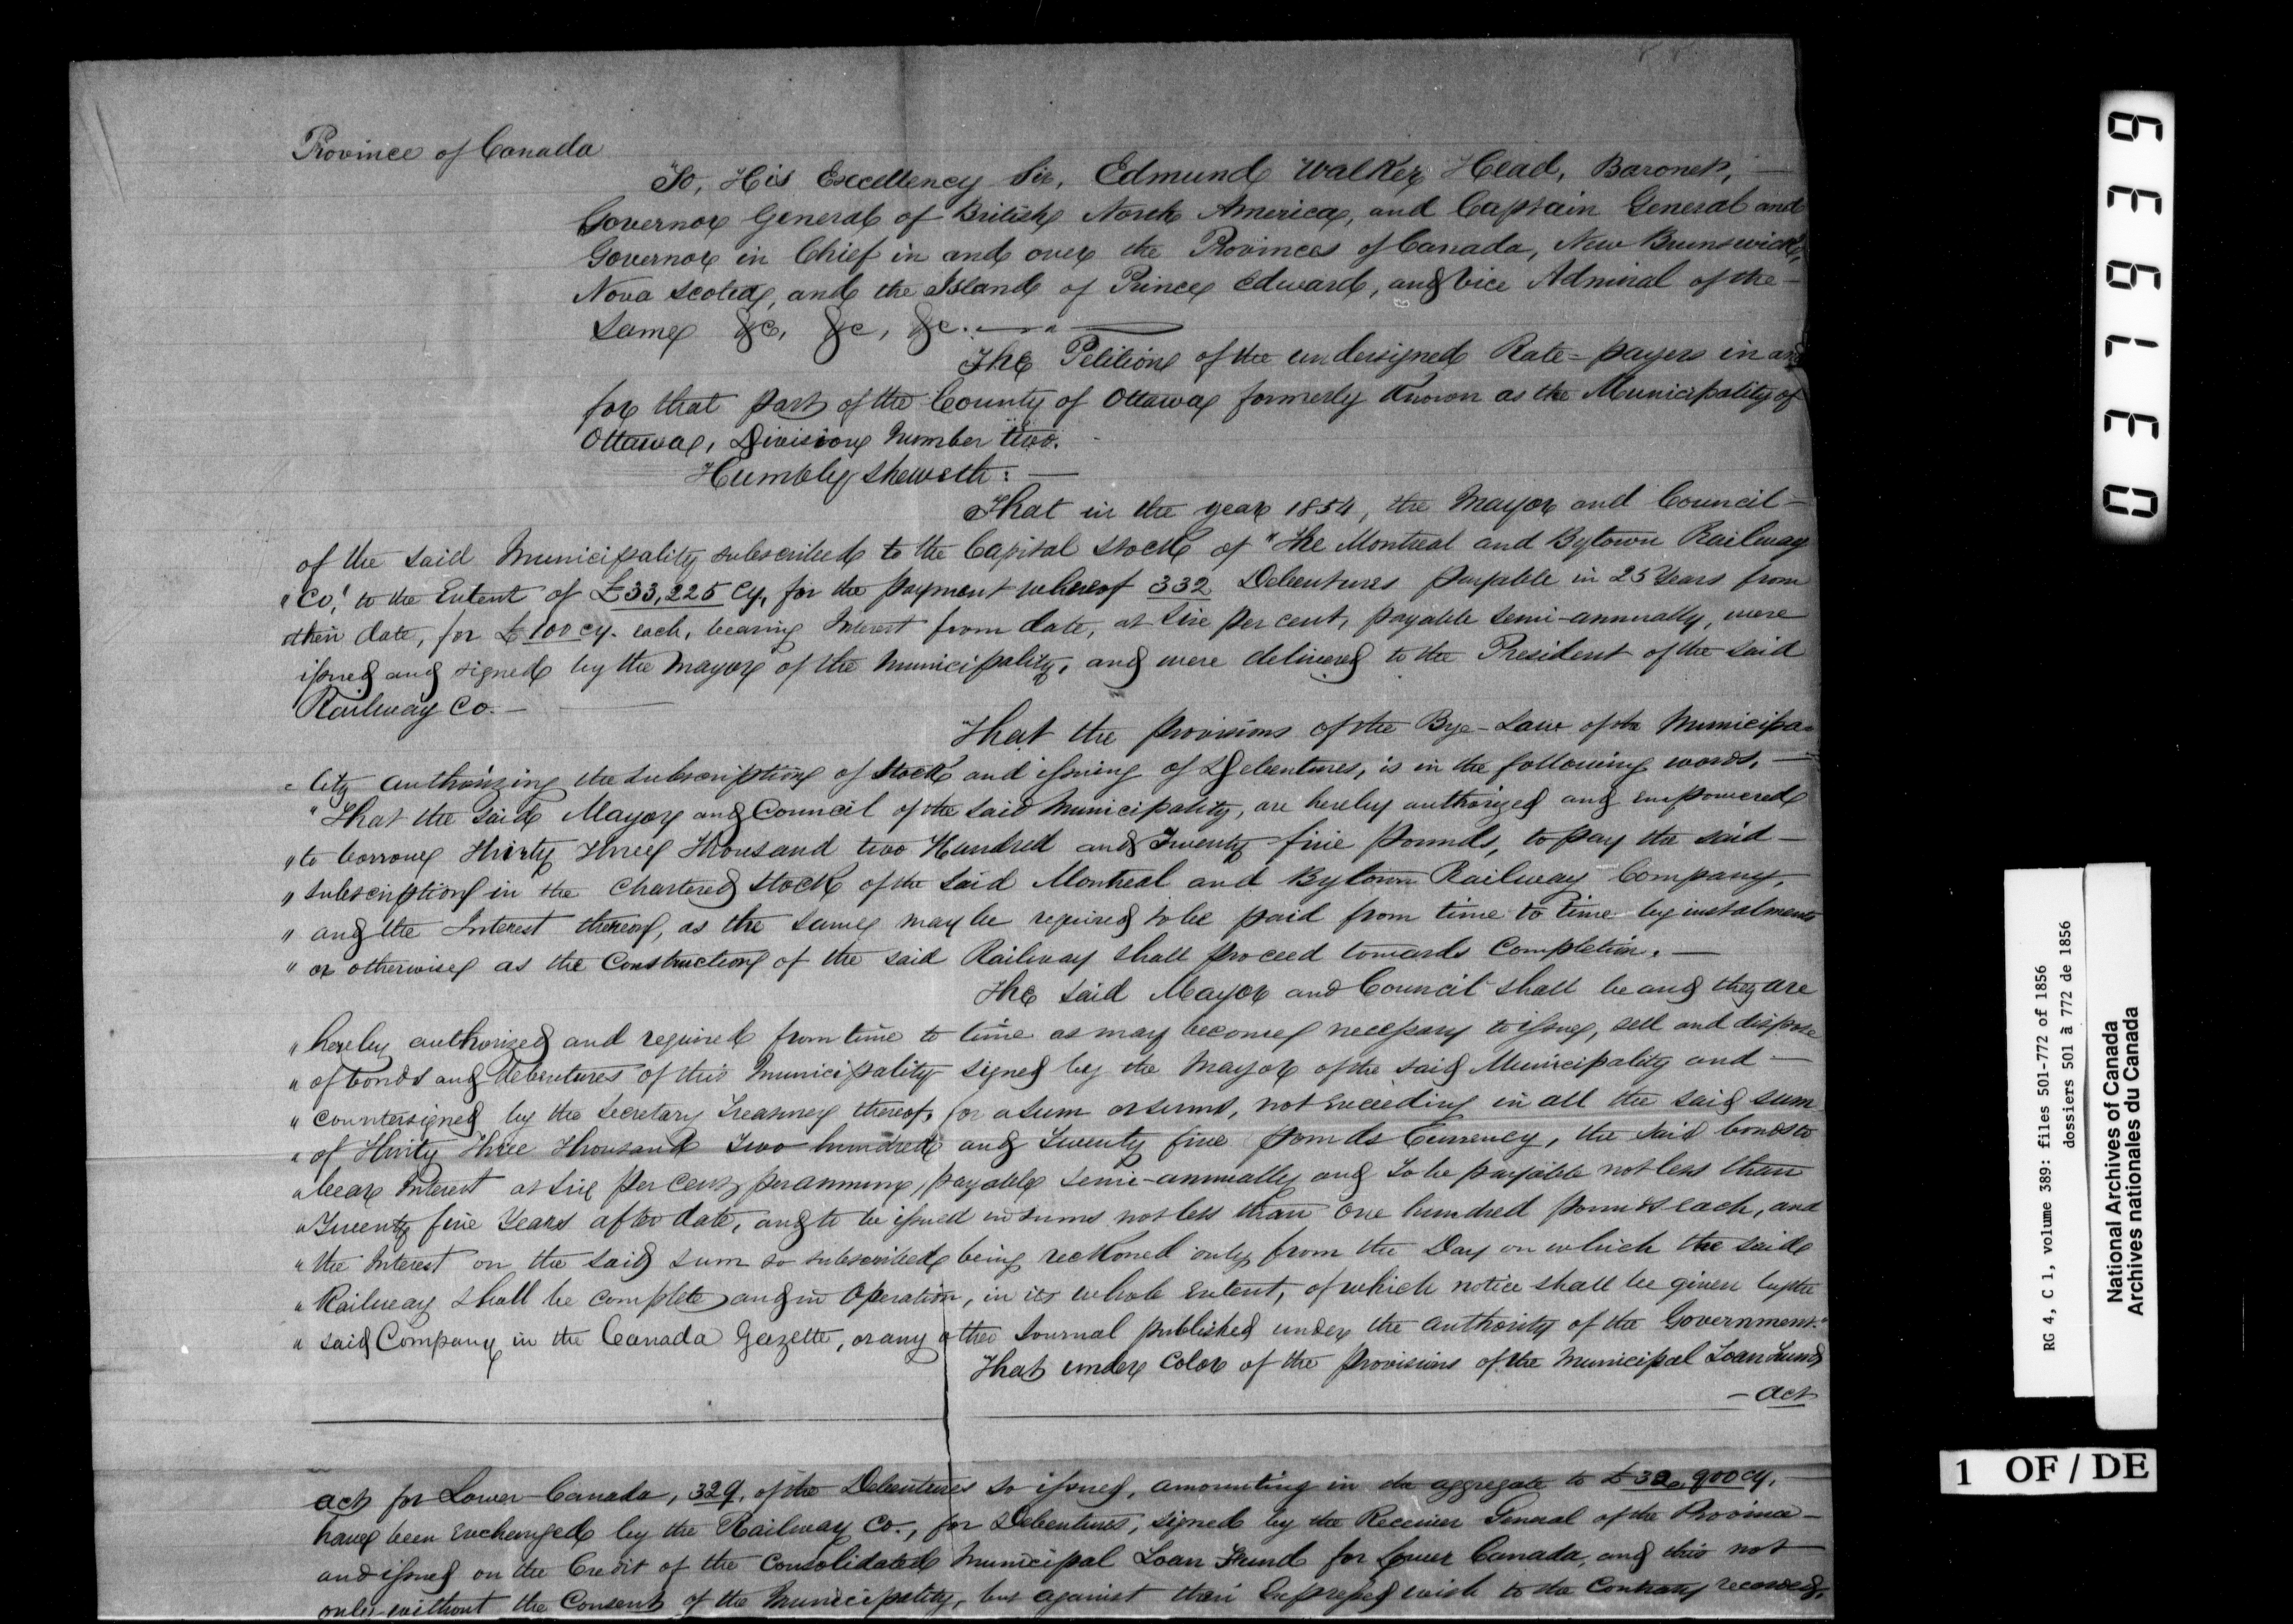 Province of Canada
To, His Excellency Sir, Edmund Walker Head, Baronet, —
Governor General of British North America, and Captain General and
Governor in Chief in and over the Provinces of Canada, New Brunswick,
Nova Scotia, and the Island of Prince Edward, and Vice Admiral of the —
Same &c, &c, &c. —
The Petition of the undersigned Rate = payers in and
for that part of the County of Ottawa formerly Known as the Municipality of
Ottawa, Division Number two. -
Humbly sheweth: —
That in the year 1854, the Mayor and Council —
of the said Municipality subscribed to the Capital Stock of "The Montreal and Bytown Railway
"Co." to the Extent of £33,225 Cy, for the payment whereof 332 Debentures payable in 25 Years from
their date, for £100 cy. each, bearing Interest from date, at Six per cent, payable semi-annually, were
issued and signed by the Mayor of the Municipality, and were delivered to the President of the said
Railway Co. —
That the provisions of the Bye-Law of the Municipa=
=lity authorizing the subscription of Stock and issuing of Debentures, is in the following words, —
"That the said Mayor and Council of the said Municipality, are hereby authorized and empowered
"to borrow Thirty Three Thousand two Hundred and Twenty five pounds, to pay the said —
"subscription in the Chartered Stock of the said Montreal and Bytown Railway Company,
"and the Interest thereof, as the same may be required to be paid from time to time by instalments
"or otherwise as the Construction of the said Railway shall proceed towards Completion. —
The said Mayor and Council shall be and they are
"hereby authorized and required from time to time as may become necessary to issue, sell and dispose
"of bonds and debentures of this Municipality signed by the Mayor of the said Municipality and —
"countersigned by the Secretary Treasurer thereof, for a sum or sums, not Exceeding in all the said sum
"of Thirty Three Thousand Two hundred and Twenty five pounds Currency, the said bonds to
"bear Interest at six per cent per annum, payable semi-annually and to be payable not less than
"Twenty five Years after date, and to be issued in sums not less than One hundred pounds each, and
"the Interest on the said sum so subscribed being reckoned only from the Day on which the said
"Railway shall be complete and in Operation, in its whole Extent, of which notice shall be given by the
"said Company in the Canada Gazette, or any other Journal published under the authority of the Government."
That under Color of the provisions of the Municipal Loan Fund
— Act
Act for Lower Canada, 329, of the Debentures so issued, amounting in the aggregate to £32,900 Cy,
have been Exchanged by the Railway Co., for Debentures, signed by the Receiver General of the Province —
and issued on the Credit of the Consolidated Municipal Loan Fund for Lower Canada, and this not
only without the Consent of the Municipality, but against their Expressed wish to the Contrary recorded,
037939
RG 4, C 1, volume 389: files 501-772 of 1856
dossiers 501 à 772 de 1856
National Archives of Canada
Archives nationales du Canada
1 OF / DE